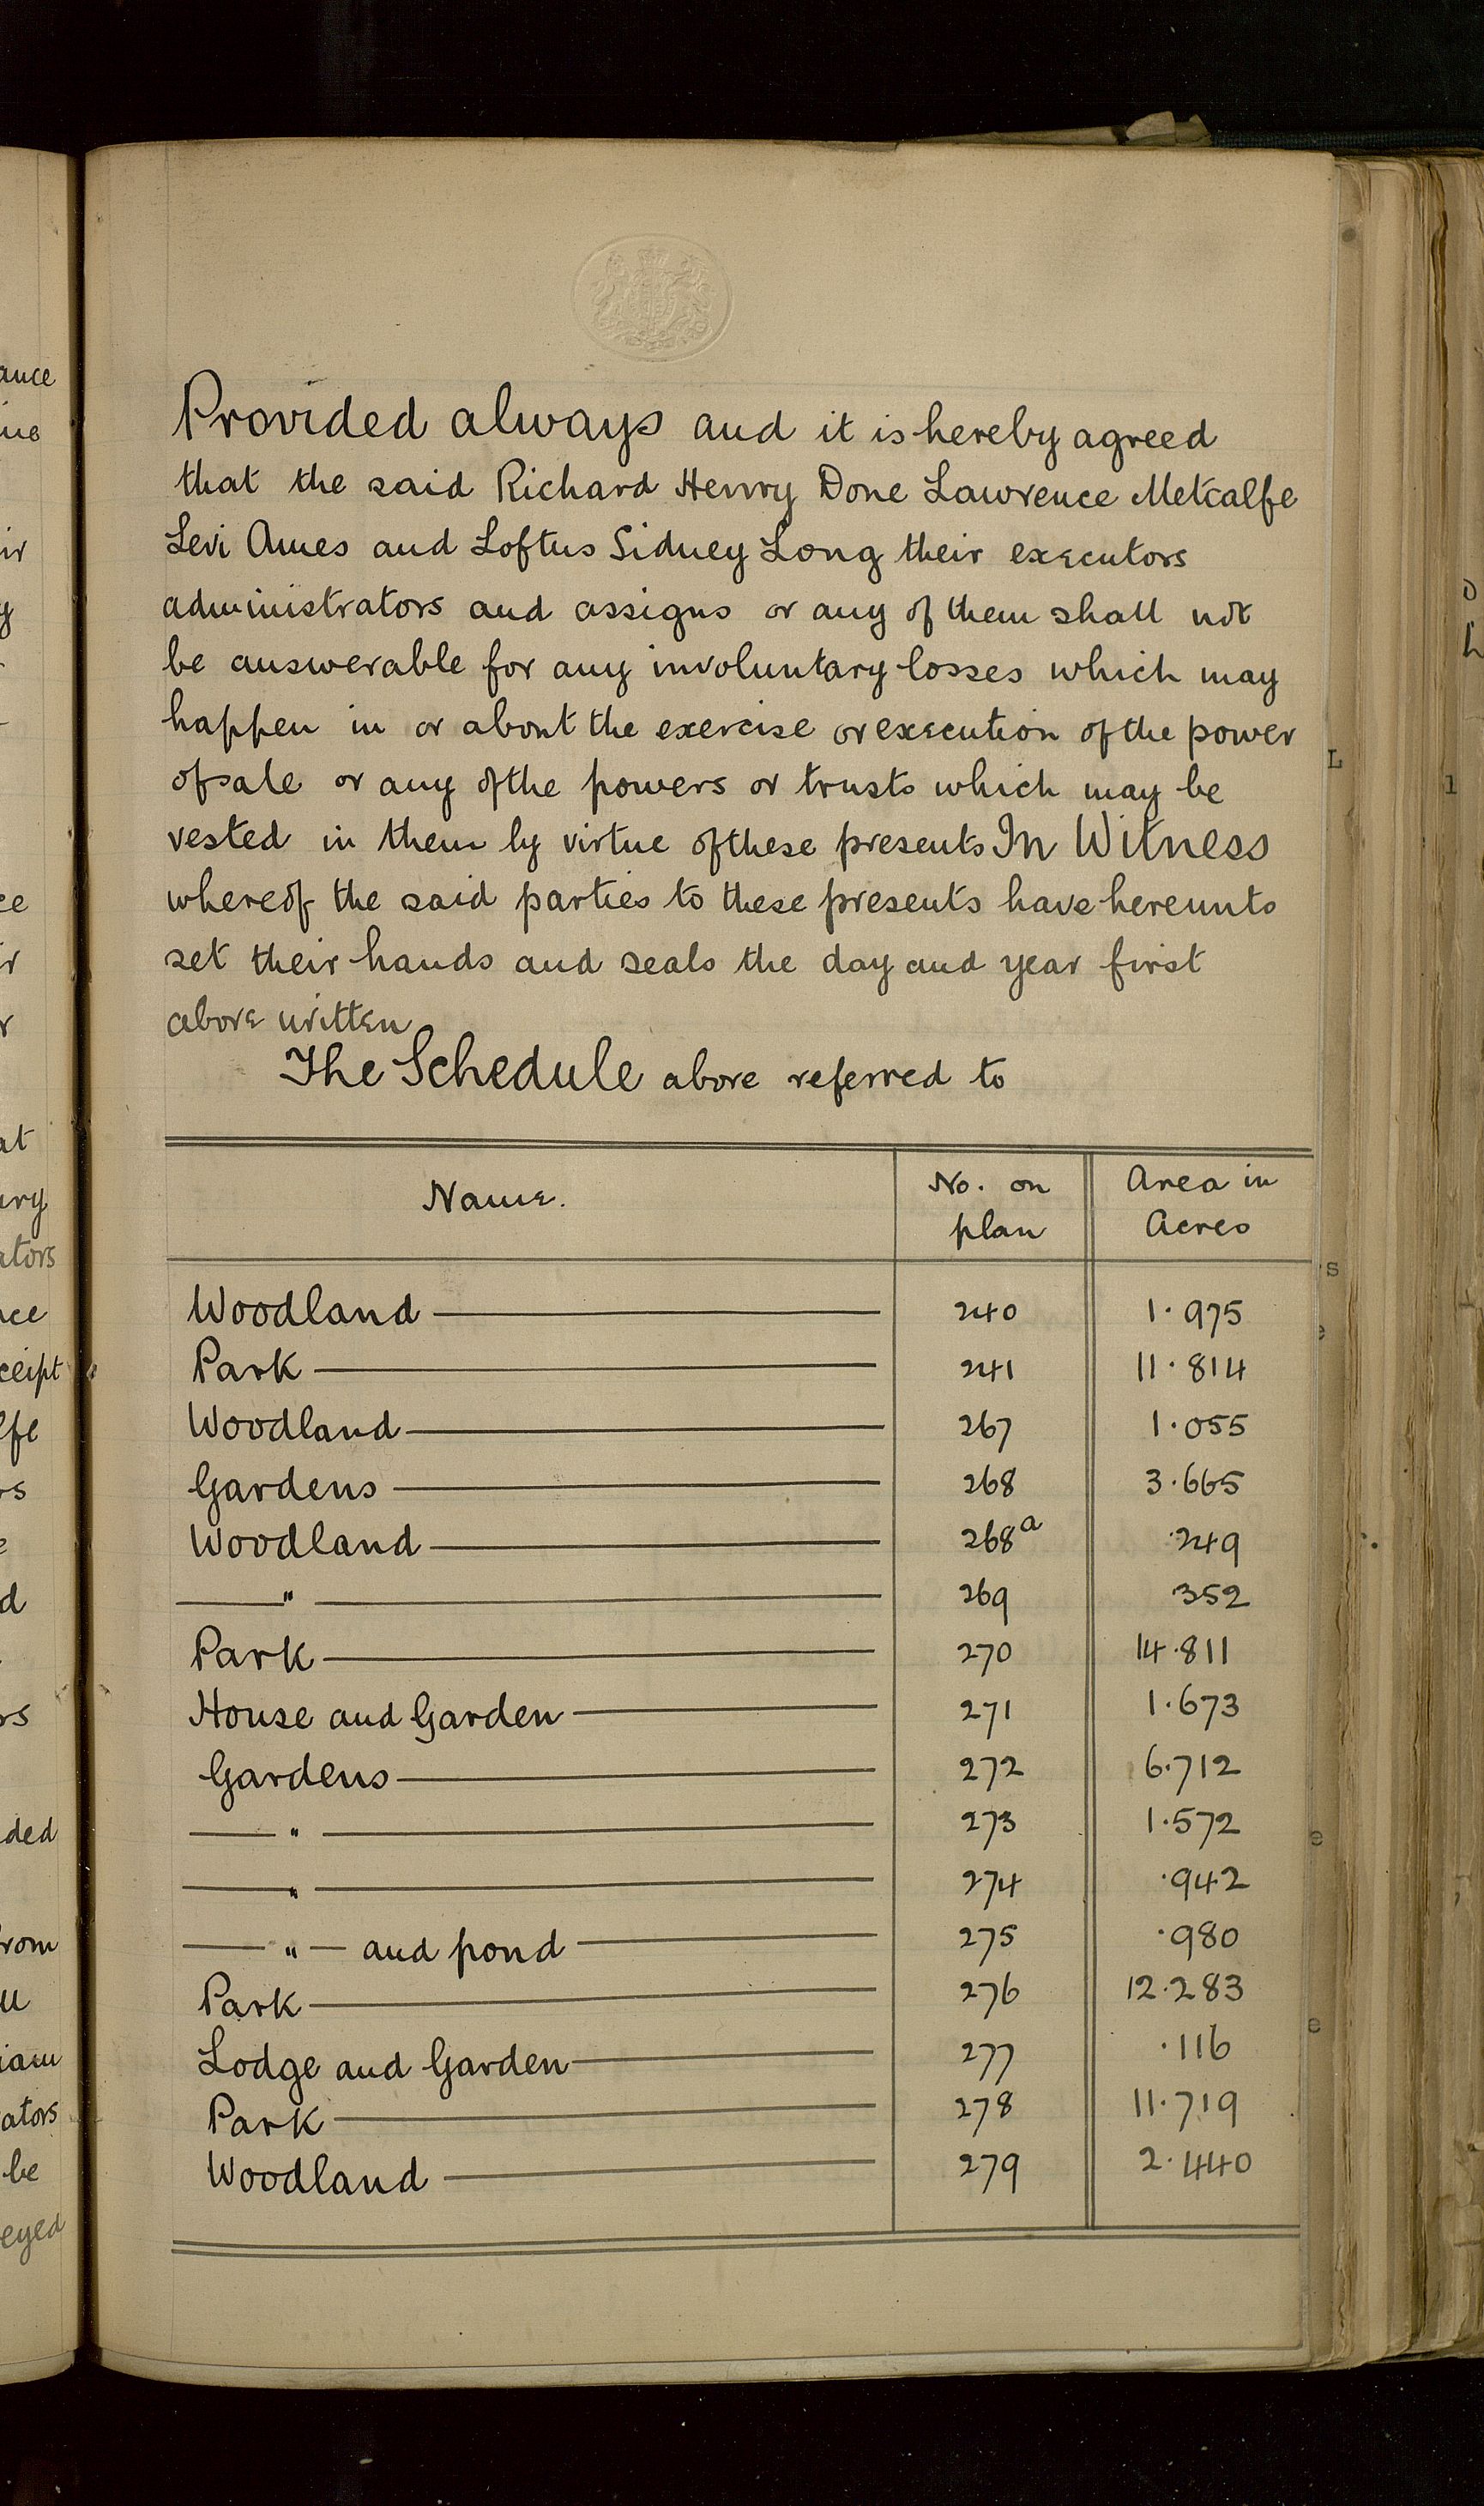 Provided always and it is hereby agreed
that the said Richard Henry Done Lawrence Metcalfe
Levi Ames and Loftus Sidney Long their executors
administrators and assigns or any of them shall not
be answerable for any involuntary losses which may
happen in or about the exercise or execution of the power
of sale or any of the powers or trusts which may be
vested in them by virtue of these presents In Witness
whereof the said parties to these presents have hereunto
set their hands and seals the day and year first
above written
The Schedule above referred to
Name. No. on plan Area in Acres
Woodland 240 1.975
Park 241 11.814
Woodland 267 1.055
Gardens 268 3.665
Woodland 268a .249
" 269 352
Park 270 14.811
House and Garden 271 1.673
Gardens 272 6.712
" 273 1.572
" 274 .942
" and pond 275 .980
Park 276 12.283
Lodge and Garden 277 .116
Park 278 11.719
Woodland 279 2.440